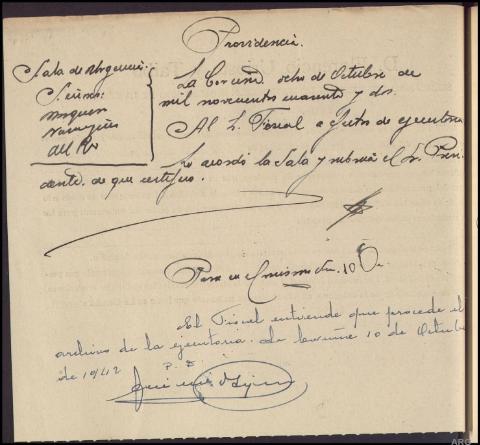 Providencia.
Sala de Urgencia.
Señores
del Rio
La Coruña ocho de Octubre de
mil novecientos cuarenta y dos.
Al S. Fiscal a efectos de ejecutoria
Lo acordó la Sala y rubrica el Sr. Presi-
dente, de que certifico.
Pasa en
El Fiscal entiende que procede el
archivo de la ejecutoria. La Coruña 10 de Octubre
de 1942
P. D.
José Luis
ARG